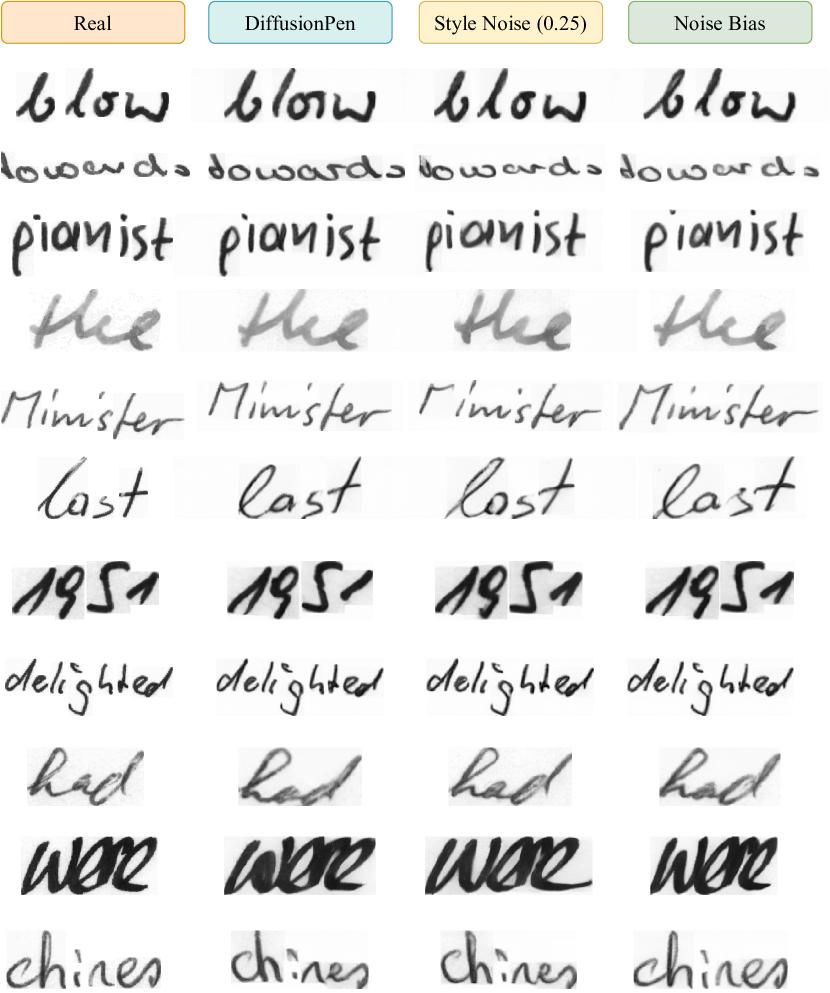 Real DiffusionPen Style Noise (0.25) Noise Bias
blow blow blow blow
towards towards towards towards
pianist pianist pianist pianist
the the the the
Minister Minister Minister Minister
last last last last
1951 1951 1951 1951
delighted delighted delighted delighted
had had had had
were were were were
chines chines chines chines